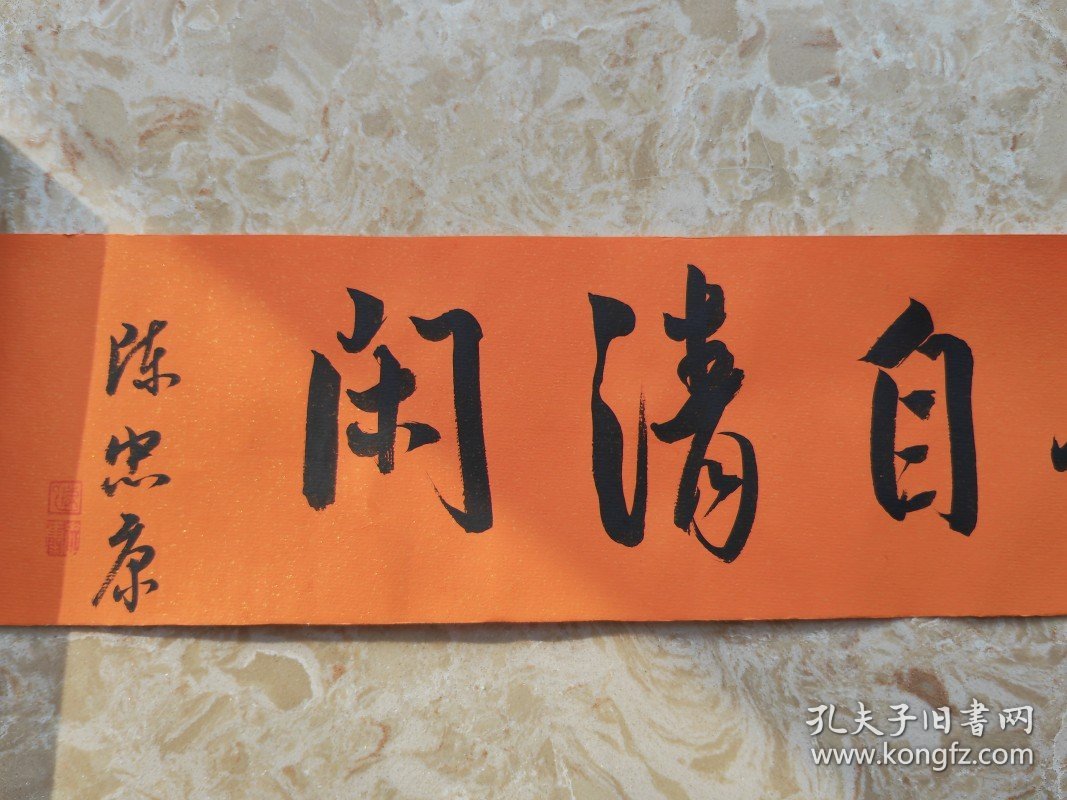 自清闲
陈忠康
孔夫子旧書网
www.kongfz.com